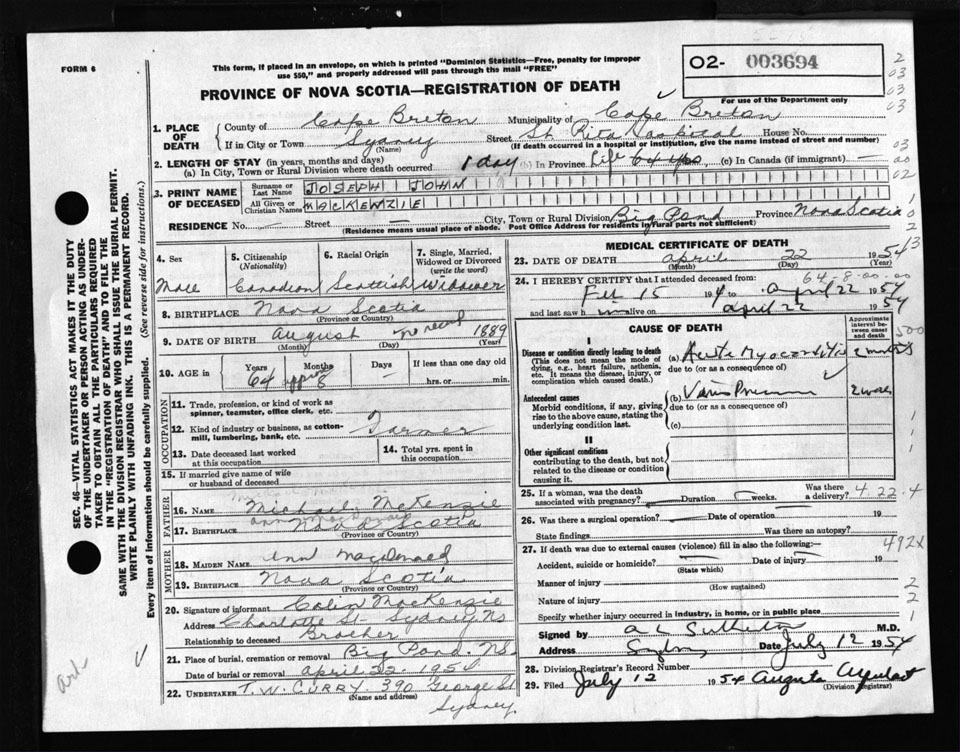 FORM 6
This form, if placed in an envelope, on which is printed "Dominion Statistics—Free, penalty for improper
use $50," and properly addressed will pass through the mail "FREE"
O2- 003694
For use of the Department only
PROVINCE OF NOVA SCOTIA—REGISTRATION OF DEATH
1. PLACE OF DEATH
County of Cape Breton Municipality of Cape Breton
If in City or Town Sydney Street St. Rita Hospital House No.
(Name) (If death occurred in a hospital or institution, give the name instead of street and number)
2. LENGTH OF STAY (in years, months and days)
(a) In City, Town or Rural Division where death occurred 1 day (b) In Province Life 64 yrs (c) In Canada (if immigrant) —
3. PRINT NAME OF DECEASED
Surname or Last Name JOSEPH JOHN
All Given or Christian Names MACKENZIE
RESIDENCE No. — Street — City, Town or Rural Division Big Pond Province Nova Scotia
(Residence means usual place of abode. Post Office Address for residents in rural parts not sufficient)
4. Sex Male
5. Citizenship (Nationality) Canadian
6. Racial Origin Scottish
7. Single, Married, Widowed or Divorced (write the word) Widower
8. BIRTHPLACE Nova Scotia
(Province or Country)
9. DATE OF BIRTH August no record 1889
(Month) (Day) (Year)
10. AGE in Years Months Days If less than one day old
64 approx 8 — hrs. or min.
OCCUPATION
11. Trade, profession, or kind of work as
spinner, teamster, office clerk, etc.
12. Kind of industry or business, as cotton-
mill, lumbering, bank, etc. Farmer
13. Date deceased last worked
at this occupation
14. Total yrs. spent in
this occupation
15. If married give name of wife
or husband of deceased
FATHER
16. NAME Michael McKenzie
17. BIRTHPLACE Nova Scotia
(Province or Country)
MOTHER
18. MAIDEN NAME Ann MacDonald
19. BIRTHPLACE Nova Scotia
(Province or Country)
20. Signature of informant Colin MacKenzie
Address Charlotte St- Sydney NS
Relationship to deceased Brother
21. Place of burial, cremation or removal Big Pond. NS.
Date of burial or removal april 22. 1954
22. UNDERTAKER T. W. CURRY. 390 George St
(Name and address) Sydney.
MEDICAL CERTIFICATE OF DEATH
23. DATE OF DEATH april 22 1954
(Month) (Day) (Year)
64-8-00-00
24. I HEREBY CERTIFY that I attended deceased from:
Feb 15 to april 22 1954
and last saw h im alive on april 22 1954
CAUSE OF DEATH
Approximate interval between onset and death
I
Disease or condition directly leading to death
(This does not mean the mode of
dying, e.g., heart failure, asthenia,
etc. It means the disease, injury, or
complication which caused death.)
(a) Acute Myocarditis
due to (or as a consequence of)
Antecedent causes
Morbid conditions, if any, giving
rise to the above cause, stating the
underlying condition last.
(b)
due to (or as a consequence of)
(c)
II
Other significant conditions
contributing to the death, but not
related to the disease or condition
causing it.
25. If a woman, was the death
associated with pregnancy? Duration weeks. Was there a delivery?
4.22.4
26. Was there a surgical operation? Date of operation 19
State findings Was there an autopsy?
27. If death was due to external causes (violence) fill in also the following:— 492X
Accident, suicide or homicide? Date of injury 19
(State which)
Manner of injury
(How sustained)
Nature of injury
Specify whether injury occurred in industry, in home, or in public place
Signed by M.D.
Address Sydney Date July 12 1954
28. Division Registrar's Record Number
29. Filed July 12 1954 Augusta
(Division Registrar)
SEC. 46—VITAL STATISTICS ACT MAKES IT THE DUTY
OF THE UNDERTAKER OR PERSON ACTING AS UNDER-
TAKER TO OBTAIN ALL THE PARTICULARS REQUIRED
IN THE "REGISTRATION OF DEATH" AND TO FILE THE
SAME WITH THE DIVISION REGISTRAR WHO SHALL ISSUE THE BURIAL PERMIT.
WRITE PLAINLY WITH UNFADING INK. THIS IS A PERMANENT RECORD.
Every item of information should be carefully supplied. (See reverse side for instructions.)